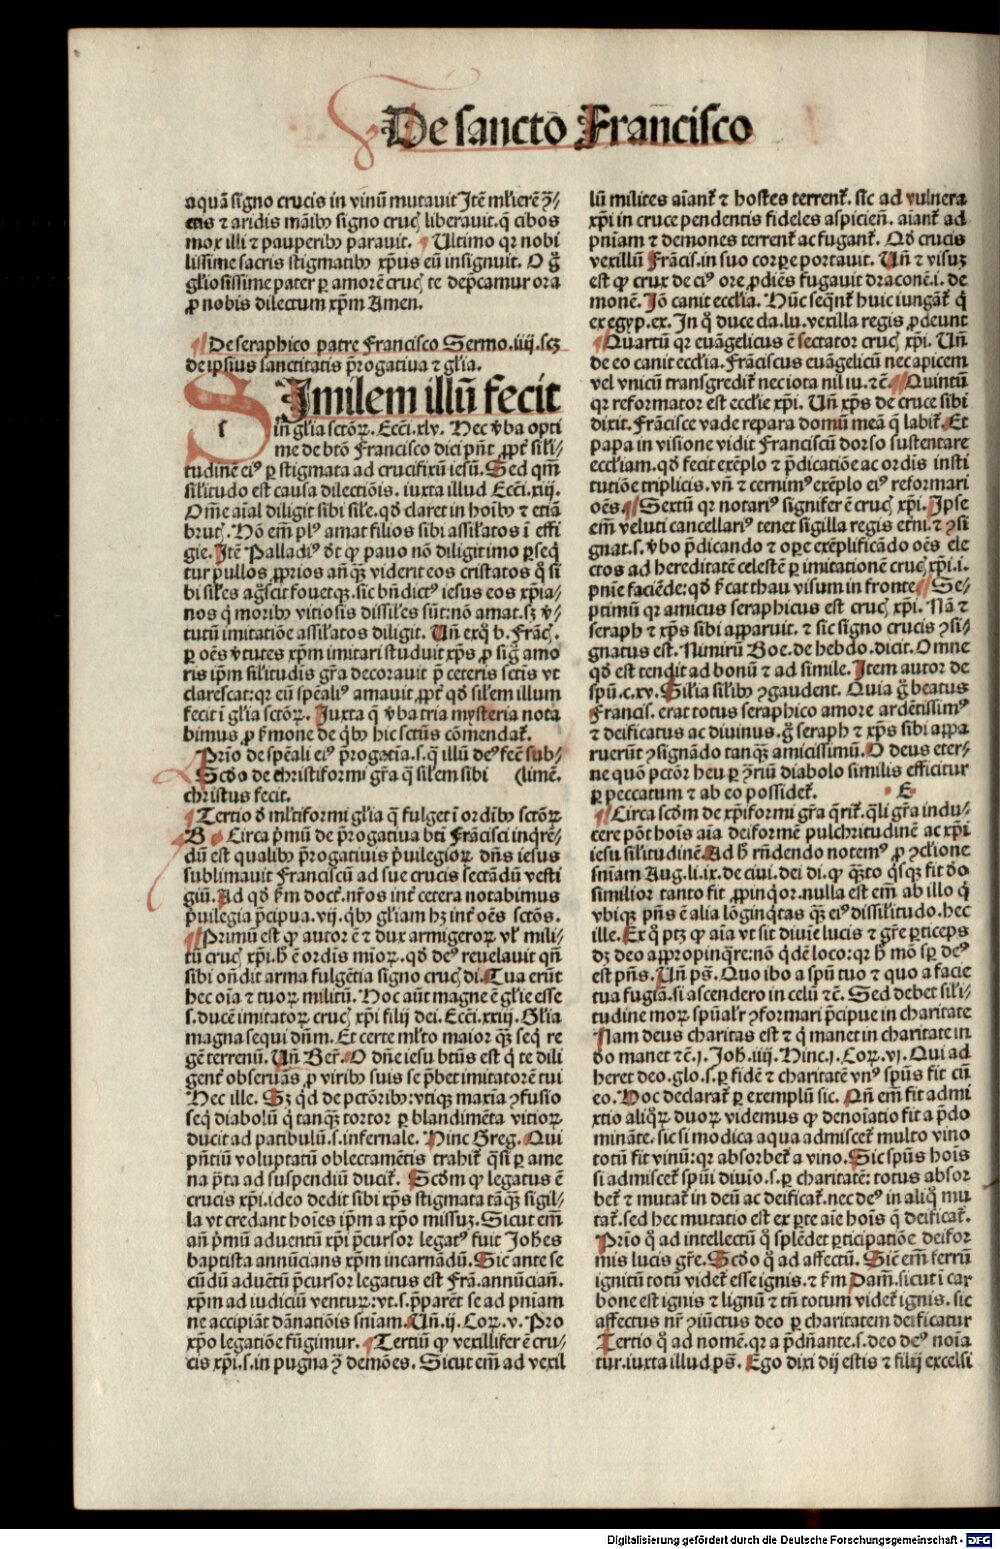 De sancto Francisco
aquā signo crucis in vinū mutauit Itē mlierē ꝯ/
ctis ⁊ aridis māibꝰ signo crucꝭ liberauit. q̄ cibos
mox illi ⁊ pauperibꝰ parauit. Ultimo qꝛ nobi
lissime sacris stigmatibꝰ xp̄us eū insignuit. O g̊
gliosissime pater ꝑ amorē crucꝭ te dep̄camur ora
ꝓ nobis dilectum xp̄m Amen.
De seraphico patre Francisco Sermo .iiij. scꝫ
de ipsius sanctitatis p̄rogatiua ⁊ gl̄ia.
SImilem illū fecit
in gl̄ia sctōꝝ. Ecci. xlv. Hec v̄ba opti
me de btō Francisco dici pn̄t ꝓpt̄ sili⸗
tudinē eiꝰ ꝑ stigmata ad crucifixū iesū. Sed qm̄
silitudo est causa dilectiōis. iuxta illud Ecci. xiij.
Om̄e aīal diligit sibi sile. qd̄ claret in hoībꝰ ⁊ etiā
brutꝭ. Hō em̄ plꝰ amat filios sibi assilatos ī effi
gie. Itē Palladiꝰ dt̄ ꝙ pauo nō diligit imo ꝑseq̄
tur pullos ꝓprios an̄ qꝫ viderit eos cristatos q̊ si
bi siles ag̊scit fouetqꝫ. sic bn̄dictꝰ iesus eos xp̄ia⸗
nos q̇ moribꝰ vitiosis dissiles sūt: nō amat. sꝫ v̄⸗
tutū imitatiōe assilatos diligit. Un̄ exq̊ b. Frācꝭ.
ꝑ oēs v̄tutes xp̄m imitari studuit xp̄s ꝓ sig̊ amo
ris ip̄m silitudis gr̄a decorauit p̄ ceteris sctīs vt
clarescat: qꝛ eū spēali9 amauit ꝓpt̄ qd̄ silem illum
fecit ī gl̄ia sctōꝝ. Juxta q̄ v̄ba tria mysteria nota
bimus ꝓ ẜmone de q̇bꝰ hic sctūs cōmendat̄.
Prīo de spēali eiꝰ p̄rogatīa. s. q̄ illū deꝰ fec̄ sub⸗
Scd̄o de christiformi gr̄a q̄ silem sibi (limē.
christus fecit.
Tertio d̄ ml̄tiformi gl̄ia q̄ fulget ī ordībꝰ sctōꝝ
B Circa p̄mū de p̄rogatiua bti Frācisci inq̇rē⸗
dū est qualibꝰ p̄rogatiuis p̄uilegioꝝ dn̄s iesus
sublimauit Franciscū ad sue crucis sectādū vesti
giū. Ad qd̄ ẜm doct̄. nr̄os int̄ cetera notabimus
p̄uilegia p̄cipua. vij. q̇bꝰ gl̄iam hꝫ int̄ oēs sctōs.
Primū est ꝙ autor ē ⁊ dux armigeroꝝ vl̓ mili⸗
tū crucꝭ xp̄i. h̄ ē ordis mīoꝝ. qd̄ deꝰ reuelauit qn̄
sibi on̄dit arma fulgētia signo crucꝭ di. Tua erūt
hec oīa ⁊ tuoꝝ militū. Hoc aūt magne ē gl̄ie esse
s. ducē imitatoꝝ crucꝭ xp̄i filij dei. Ecci. xxiij. Gl̄ia
magna sequi dn̄m. Et certe ml̄to maior qꝫ seq̇ re
gē terrenū. Un̄ Ber̄. O dn̄e iesu btūs est q̇ te dili
gent̄ obseruās ꝓ viribꝰ suis se p̄bet imitatorē tui
Hec ille. Sꝫ qd̄ de pctōribꝰ: vtiqꝫ maxīa ꝯfusio
seq̇ diabolū q̇ tanqꝫ tortor ꝑ blandimēta vitioꝝ
ducit ad patibulū. s. infernale. Hinc Greg. Qui
pn̄tiū voluptatū oblectamētis trahit̄ q̄si ꝑ ame
na p̄ta ad suspendiū ducit̄. Scd̄m ꝙ legatus ē
crucis xp̄i. ideo dedit sibi xp̄s stigmata tāqꝫ sigil⸗
la vt credant hoīes ip̄m a xp̄o missuꝫ. Sicut em̄
an̄ p̄mū aduentū xp̄i p̄cursor legatꝰ fuit Joh̄es
baptista annūcians xp̄m incarnādū. Sic ante se
cūdū aduētū p̄cursor legatus est Frā. annūcian̄.
xp̄m ad iudiciū ventuꝝ: vt. s. p̄parēt se ad pn̄iam
ne accipiāt dānatiōis sn̄iam. Un̄. ij. Coꝝ. v. Pro
xp̄o legatiōe fūgimur. Tertiū ꝙ vexillifer ē cru⸗
cis xp̄i. s. in pugna ꝯ̄ demōes. Sicut em̄ ad vexil
lū milites aīant̄ ⁊ hostes terrent̄. sic ad vulnera
xp̄i in cruce pendentis fideles aspicien̄. aīant̄ ad
pniam ⁊ demones terrent̄ ac fugant̄. Qd̄ crucis
vexillū Frācis. in suo corꝑe portauit. Un̄ ⁊ visuꝫ
est ꝙ crux de eiꝰ ore ꝓdiēs fugauit draconē. i. de
monē. Jō canit eccl̄ia. Hūc seq̄nt̄ huic iungāt̄ q̇
ex egyp. ex. In q̊ duce cla. lu. vexilla regis ꝓdeunt
Quartū qꝛ euāgelicus ē sectator crucꝭ xp̄i. Un̄
de eo canit eccl̄ia. Frāciscus euāgelicū nec apicem
vel vnicū transgredit̄ nec iota nil iu. ⁊ē. Quintū
qꝛ reformator est eccl̄ie xp̄i. Un̄ xp̄s de cruce sibi
dixit. Frācisce vade repara domū meā q̄ labit̄. Et
papa in visione vidit Franciscū dorso sustentare
eccl̄iam. qd̄ fecit exēplo ⁊ p̄dicatiōe ac ordīs insti
tutiōe triplicis. vn̄ ⁊ cernimꝰ exēplo eiꝰ reformari
oēs. Sextū qꝛ notariꝰ signifer ē crucꝭ xp̄i. Ipse
em̄ veluti cancellariꝰ tenet sigilla regis etn̄i. ⁊ ꝯsi
gnat. s. v̄bo p̄dicando ⁊ oꝑe exēplificādo oēs ele
ctos ad hereditatē celestē ꝑ imitationē crucꝭ xp̄i. i.
pn̄ie faciēde: qd̄ ẜ cat thau visum in fronte Se⸗
ptimū qꝛ amicus seraphicus est crucꝭ xp̄i. Nā ⁊
seraph ⁊ xp̄s sibi apparuit. ⁊ sic signo crucis ꝯsi⸗
gnatus est. Nimirū Boe. de hebdo. dicit. Omne
qd̄ est tendit ad bonū ⁊ ad simile. Item autor de
spū. c. xv. Silia silibꝰ ꝯgaudent. Quia g̊ beatus
Francis. erat totus seraphico amore ardētissimꝰ
⁊ deificatus ac diuinus. g̊ seraph ⁊ xp̄s sibi appa
ruerūt ꝯsignādo tanqꝫ amicissimū. O deus eter⸗
ne quō pctōr heu ꝑ ꝯ̄riū diabolo similis efficitur
ꝑ peccatum ⁊ ab eo possidet̄. E
Circa scd̄m de xp̄iformi gr̄a q̄rit̄. q̄li gr̄a indu⸗
cere pōt hoīs aīa deiformē pulchritudinē ac xp̄i
iesu silitudinē. Ad h̄ rn̄dendo notemꝰ ꝓ ꝯclione
sn̄iam Aug. li. ix. de ciui. dei di. ꝙ qꝫto q̇sqꝫ fit do
similior tanto fit ꝓpinq̊or. nulla est em̄ ab illo q̇
vbiqꝫ pn̄s ē alia lōginq̇tas qꝫ eiꝰ dissilitudo. hec
ille. Ex q̊ ptꝫ ꝙ aīa vt sit diuīe lucis ⁊ gr̄e ꝑticeps
dꝫ deo appropinq̄re: nō q̇dē loco: qꝛ h̄ mō sꝑ deꝰ
est pn̄s. Un̄ ps̄. Quo ibo a spū tuo ⁊ quo a facie
tua fugiā. si ascendero in celū ⁊ē. Sed debet sili⸗
tudine moꝝ spūalr̄ ꝯformari p̄cipue in charitate
Nam deus charitas est ⁊ q̇ manet in charitate in
do manet ⁊ē. j. Joh̄. iiij. Hinc. j. Coꝝ. vj. Qui ad
heret deo. glo. s. ꝑ fidē ⁊ charitatē vnꝰ spūs fit cū
eo. Hoc declarat̄ ꝑ exemplū sic. Qn̄ em̄ fit admi
xtio aliq̊ꝝ duoꝝ videmus ꝙ denoīatio fit a p̄do
mināte. sic si modica aqua admiscet̄ multo vino
totū fit vinū: qꝛ absorbet̄ a vino. Sic spūs hoīs
si admiscet̄ spūi diuīo. s. ꝑ charitatē: totus absor
bet̄ ⁊ mutat̄ in deū ac deificat̄. nec deꝰ in aliq̊ mu
tat̄. sed hec mutatio est ex ꝑte aīe hoīs q̄ deificat̄.
Prīo q̊ ad intellectū q̇ splēdet ꝑticipatiōe deifor
mis lucis gr̄e. Scd̄o q̊ ad affectū. Sic em̄ ferrū
ignitū totū videt̄ esse ignis. ⁊ ẜm Dam̄. sicut ī car
bone est ignis ⁊ lignū ⁊ tn̄ totum videt̄ ignis. sic
affectus nr̄ ꝯiūctus deo ꝑ charitatem deificatur
Tertio q̊ ad nomē. qꝛ a p̄dn̄ante. s. deo deꝰ noīa
tur. iuxta illud ps̄. Ego dixi dij estis ⁊ filij excelsi
Digitalisierung gefördert durch die Deutsche Forschungsgemeinschaft - DFG